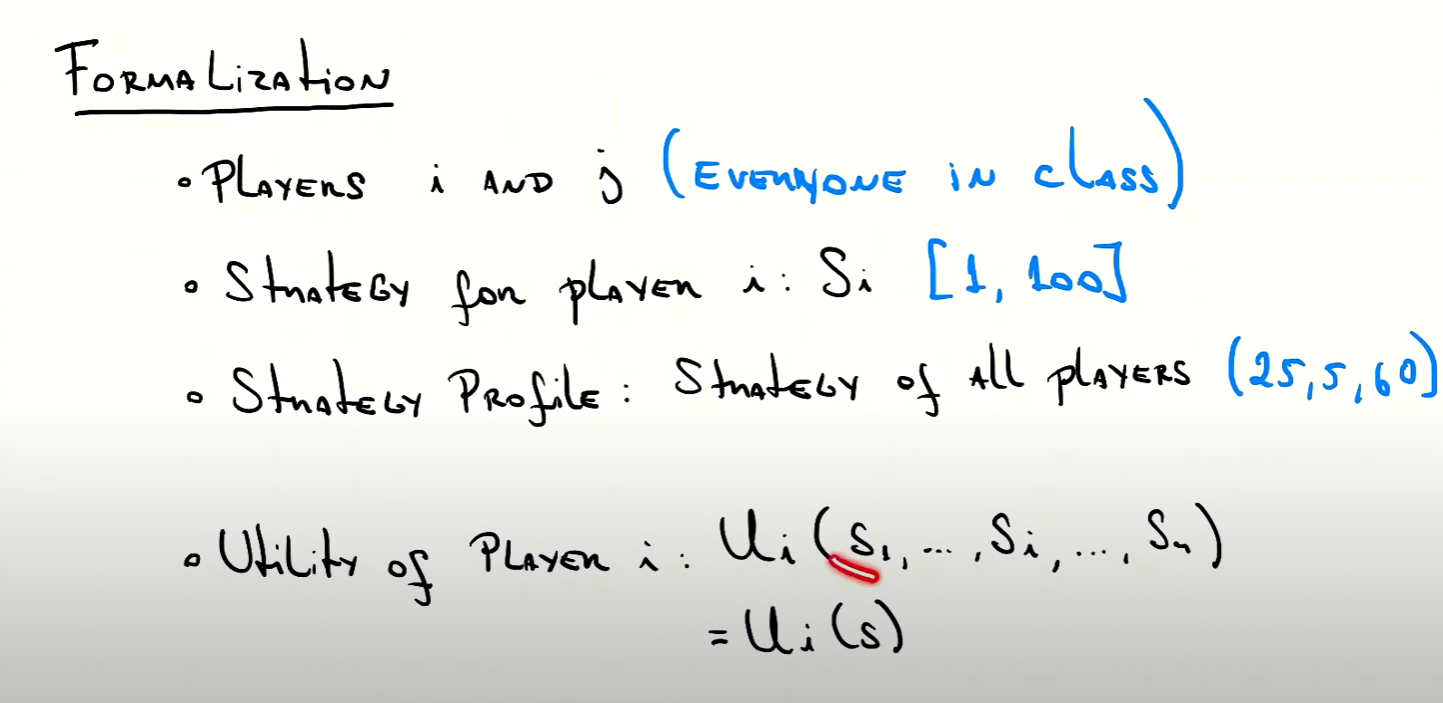 Formalization
• Players i and j (Everyone in class)
• Strategy for player i: Si [1, 100]
• Strategy Profile: Strategy of all players (25, 5, 60)
• Utility of Player i: Ui(S1, ..., Si, ..., Sn)
= Ui(s)